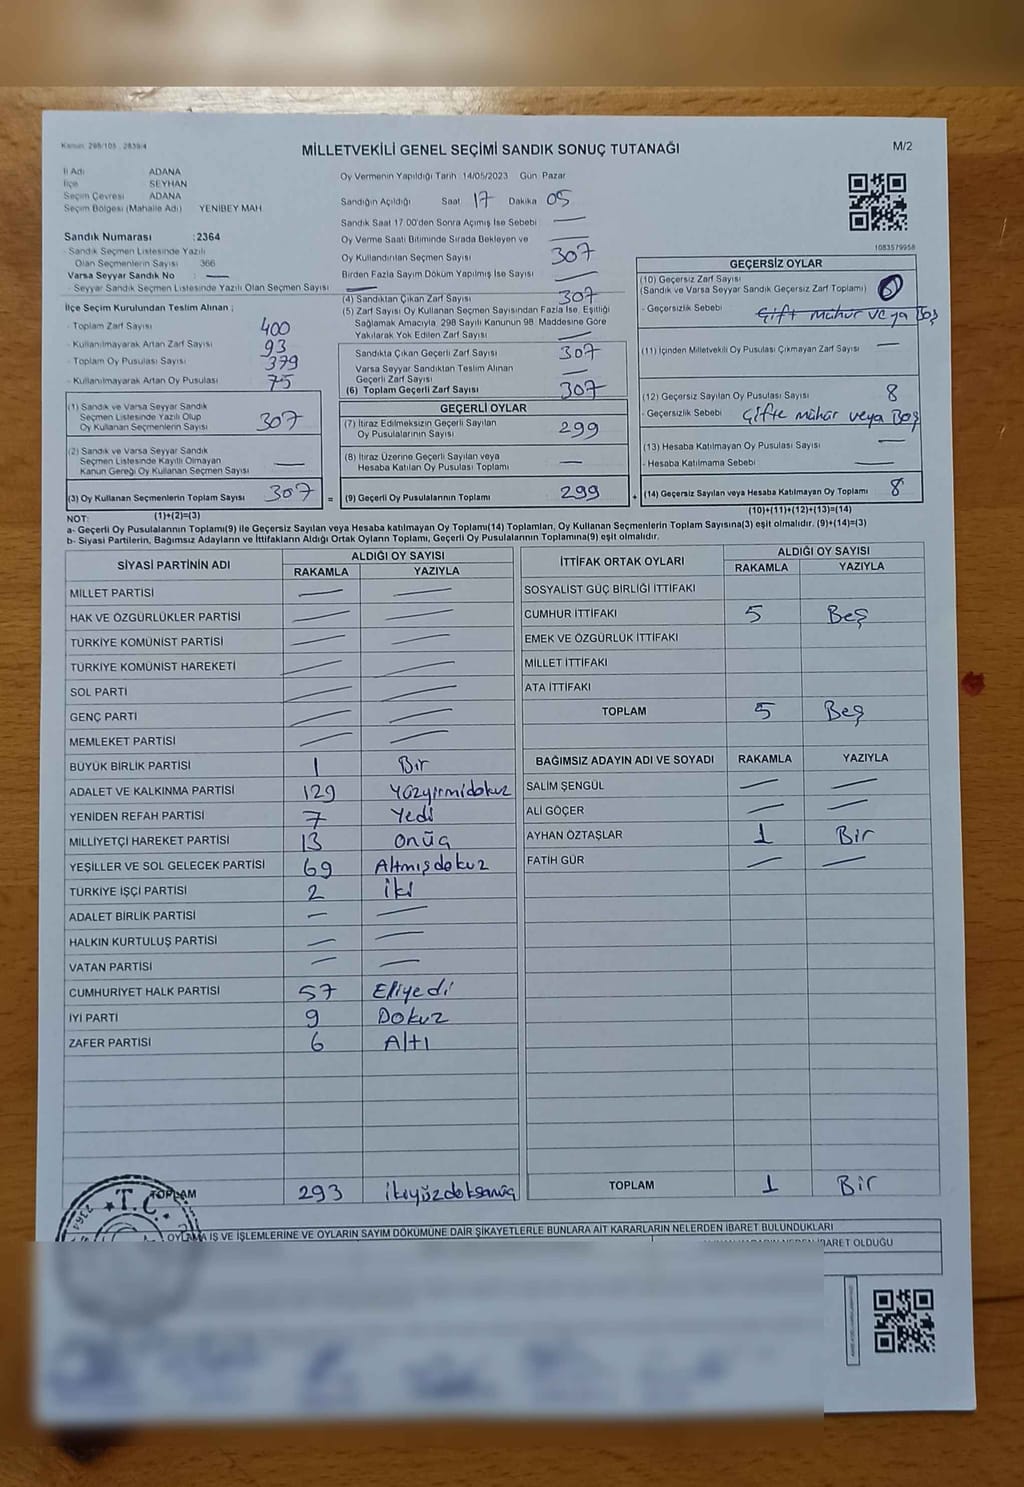 Kanun: 298/105 , 2839/4
MİLLETVEKİLİ GENEL SEÇİMİ SANDIK SONUÇ TUTANAĞI
M/2
İl Adı ADANA
İlçe SEYHAN
Seçim Çevresi ADANA
Seçim Bölgesi (Mahalle Adı) YENİBEY MAH.
Sandık Numarası :2364
- Sandık Seçmen Listesinde Yazılı
Olan Seçmenlerin Sayısı 366
Varsa Seyyar Sandık No : —
- Seyyar Sandık Seçmen Listesinde Yazılı Olan Seçmen Sayısı : —
İlçe Seçim Kurulundan Teslim Alınan ;
- Toplam Zarf Sayısı 400
- Kullanılmayarak Artan Zarf Sayısı 93
- Toplam Oy Pusulası Sayısı 379
- Kullanılmayarak Artan Oy Pusulası 75
(1) Sandık ve Varsa Seyyar Sandık
Seçmen Listesinde Yazılı Olup
Oy Kullanan Seçmenlerin Sayısı 307
(2) Sandık ve Varsa Seyyar Sandık
Seçmen Listesinde Kayıtlı Olmayan
Kanun Gereği Oy Kullanan Seçmen Sayısı —
(3) Oy Kullanan Seçmenlerin Toplam Sayısı 307 =
(1)+(2)=(3)
Oy Vermenin Yapıldığı Tarih 14/05/2023 Gün Pazar
Sandığın Açıldığı Saat 17 Dakika 05
Sandık Saat 17:00'den Sonra Açımış İse Sebebi —
Oy Verme Saati Bitiminde Sırada Bekleyen ve —
Oy Kullandırılan Seçmen Sayısı 307
Birden Fazla Sayım Döküm Yapılmış İse Sayısı —
(4) Sandıktan Çıkan Zarf Sayısı 307
(5) Zarf Sayısı Oy Kullanan Seçmen Sayısından Fazla İse, Eşitliği
Sağlamak Amacıyla, 298 Sayılı Kanunun 98. Maddesine Göre
Yakılarak Yok Edilen Zarf Sayısı —
Sandıkta Çıkan Geçerli Zarf Sayısı 307
Varsa Seyyar Sandıktan Teslim Alınan
Geçerli Zarf Sayısı —
(6) Toplam Geçerli Zarf Sayısı 307
GEÇERLİ OYLAR
(7) İtiraz Edilmeksizin Geçerli Sayılan
Oy Pusulalarının Sayısı 299
(8) İtiraz Üzerine Geçerli Sayılan veya
Hesaba Katılan Oy Pusulası Toplamı —
(9) Geçerli Oy Pusulalarının Toplamı 299 +
1083579958
GEÇERSİZ OYLAR
(10) Geçersiz Zarf Sayısı
(Sandık ve Varsa Seyyar Sandık Geçersiz Zarf Toplamı)
- Geçersizlik Sebebi Çift mühür veya Boş
(11) İçinden Milletvekili Oy Pusulası Çıkmayan Zarf Sayısı —
(12) Geçersiz Sayılan Oy Pusulası Sayısı 8
- Geçersizlik Sebebi Çifte mühür veya Boş
(13) Hesaba Katılmayan Oy Pusulası Sayısı —
- Hesaba Katılmama Sebebi —
(14) Geçersiz Sayılan veya Hesaba Katılmayan Oy Toplamı 8
(10)+(11)+(12)+(13)=(14)
NOT:
a- Geçerli Oy Pusulalarının Toplamı(9) ile Geçersiz Sayılan veya Hesaba katılmayan Oy Toplamı(14) Toplamları, Oy Kullanan Seçmenlerin Toplam Sayısına(3) eşit olmalıdır. (9)+(14)=(3)
b- Siyasi Partilerin, Bağımsız Adayların ve İttifakların Aldığı Ortak Oyların Toplamı, Geçerli Oy Pusulalarının Toplamına(9) eşit olmalıdır.
SİYASİ PARTİNİN ADI ALDIĞI OY SAYISI
RAKAMLA YAZIYLA
MİLLET PARTİSİ — —
HAK VE ÖZGÜRLÜKLER PARTİSİ — —
TÜRKİYE KOMÜNİST PARTİSİ — —
TÜRKİYE KOMÜNİST HAREKETİ — —
SOL PARTİ — —
GENÇ PARTİ — —
MEMLEKET PARTİSİ — —
BÜYÜK BİRLİK PARTİSİ 1 Bir
ADALET VE KALKINMA PARTİSİ 129 Yüzyirmidokuz
YENİDEN REFAH PARTİSİ 7 Yedi
MİLLİYETÇİ HAREKET PARTİSİ 13 onüç
YEŞİLLER VE SOL GELECEK PARTİSİ 69 Altmışdokuz
TÜRKİYE İŞÇİ PARTİSİ 2 İki
ADALET BİRLİK PARTİSİ — —
HALKIN KURTULUŞ PARTİSİ — —
VATAN PARTİSİ — —
CUMHURİYET HALK PARTİSİ 57 Elliyedi
İYİ PARTİ 9 Dokuz
ZAFER PARTİSİ 6 Altı
TOPLAM 293 ikiyüzdoksanüç
İTTİFAK ORTAK OYLARI ALDIĞI OY SAYISI
RAKAMLA YAZIYLA
SOSYALİST GÜÇ BİRLİĞİ İTTİFAKI
CUMHUR İTTİFAKI 5 Beş
EMEK VE ÖZGÜRLÜK İTTİFAKI
MİLLET İTTİFAKI
ATA İTTİFAKI
TOPLAM 5 Beş
BAĞIMSIZ ADAYIN ADI VE SOYADI RAKAMLA YAZIYLA
SALİM ŞENGÜL — —
ALİ GÖÇER — —
AYHAN ÖZTAŞLAR 1 Bir
FATİH GÜR — —
TOPLAM 1 Bir
T.C.
2364
OYLAMA İŞ VE İŞLEMLERİNE VE OYLARIN SAYIM DÖKÜMÜNE DAİR ŞİKAYETLERLE BUNLARA AİT KARARLARIN NELERDEN İBARET BULUNDUKLARI
İBARET OLDUĞU